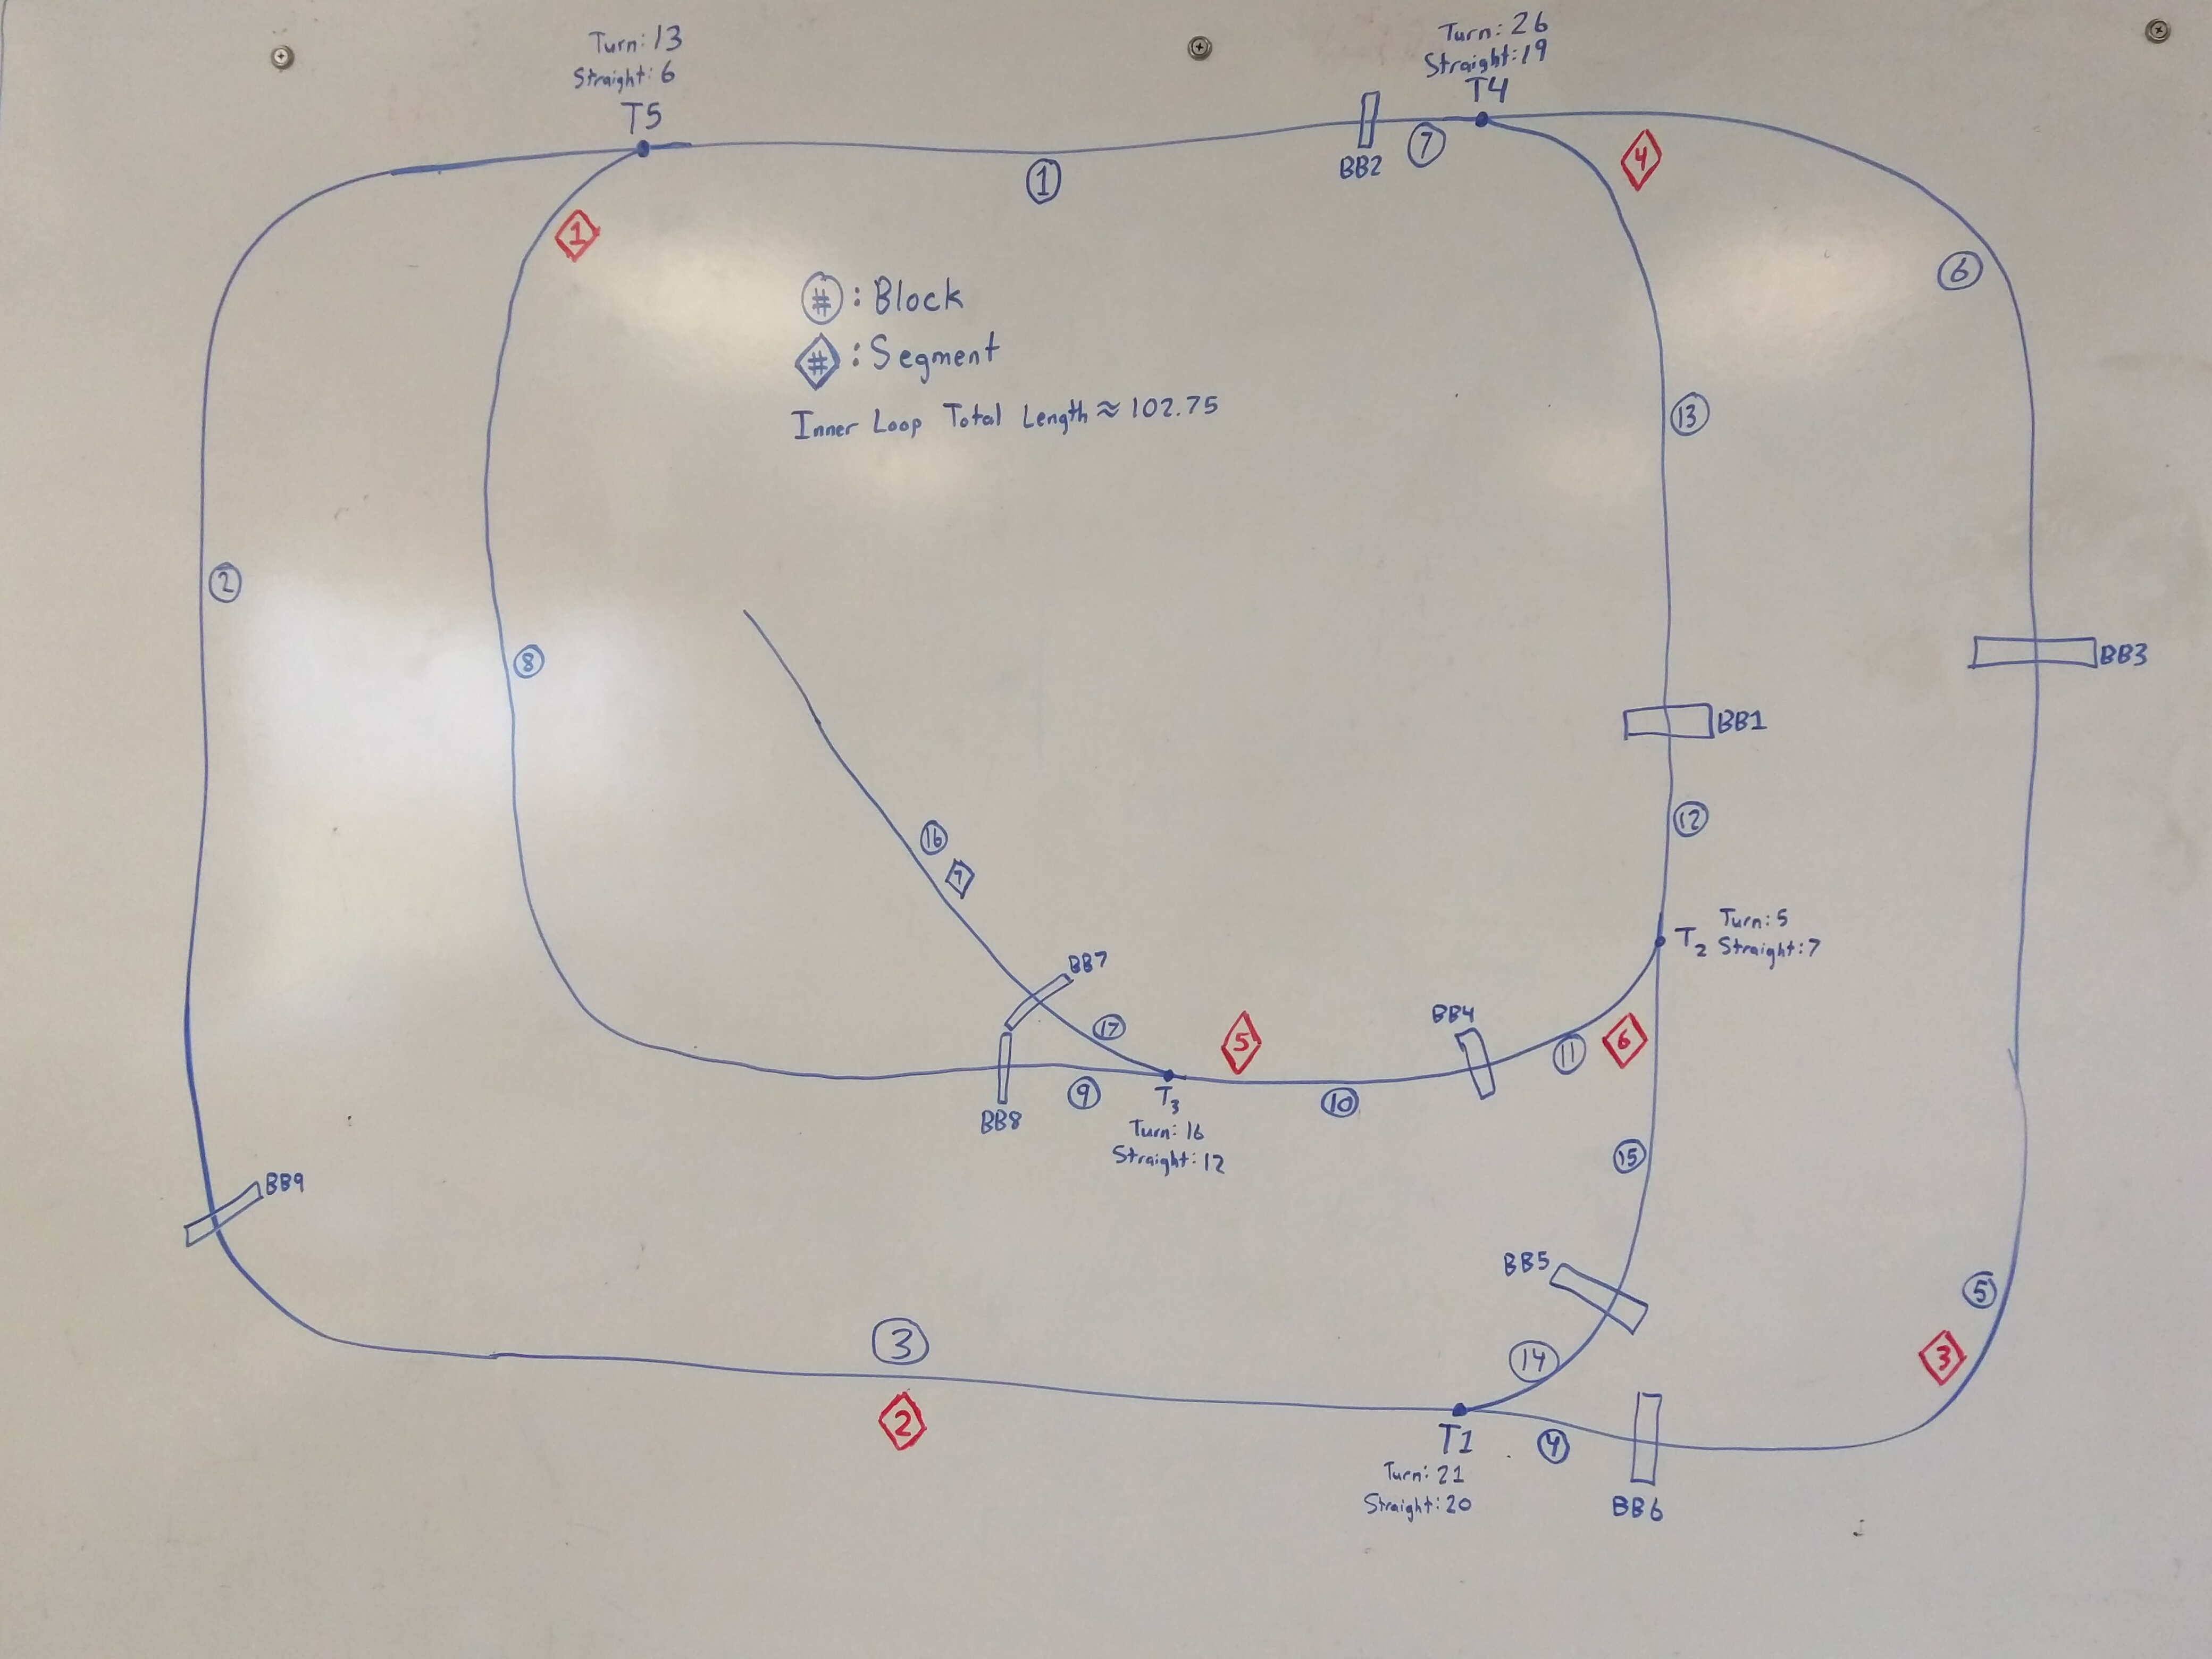 Turn: 13
Straight: 6
T5
Turn: 26
Straight: 19
T4
BB2
7
1
4
1
6
#: Block
#: Segment
Inner Loop Total Length ≈ 102.75
13
2
8
BB3
BB1
12
16
T2
Turn: 5
Straight: 7
BB7
17
5
BB4
6
11
9
T3
10
BB8
Turn: 16
Straight: 12
15
BB9
BB5
5
3
14
3
2
T1
4
Turn: 21
Straight: 20
BB6